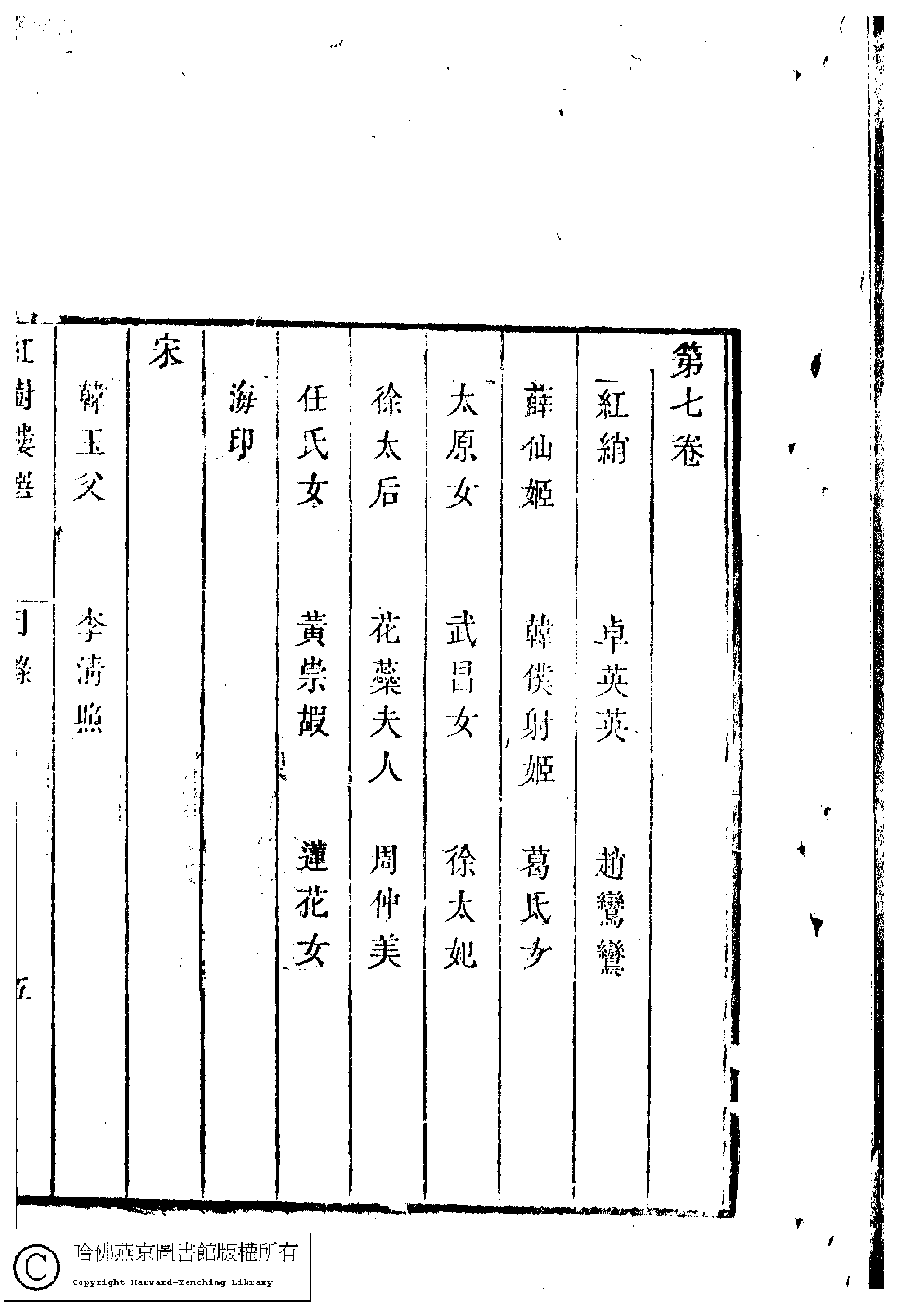 第七卷
紅綃 卓英英 趙鸞鸞
薛仙姬 韓僕射姬 葛氏女
太原女 武昌女 徐太妃
徐太后 花蘂夫人 周仲美
任氏女 黃崇嘏 蓮花女
海印
宋
韓玉父 李淸照
紅樹樓選 目錄 五
哈佛燕京圖書館版權所有
Copyright Harvard-Yenching Library